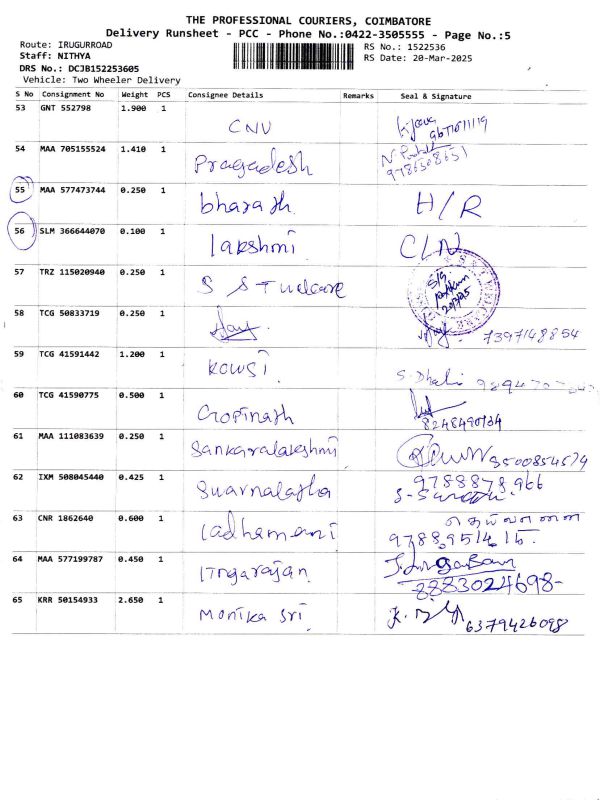 THE PROFESSIONAL COURIERS, COIMBATORE
Delivery Runsheet - PCC - Phone No.:0422-3505555 - Page No.:5
Route: IRUGURROAD
RS No.: 1522536
Staff: NITHYA
RS Date: 20-Mar-2025
DRS No.: DCJB152253605
Vehicle: Two Wheeler Delivery
S No Consignment No Weight PCS Consignee Details Remarks Seal & Signature
53 GNT 552798 1.900 1 CNV
54 MAA 705155524 1.410 1 Pragadesh 9786508651
55 MAA 577473744 0.250 1 bharath H/R
56 SLM 366644070 0.100 1 lakshmi C/N
57 TRZ 115020940 0.250 1 S S Tuelcare
58 TCG 50833719 0.250 1 7397148854
59 TCG 41591442 1.200 1 Kowsi S. Dhali
60 TCG 41590775 0.500 1 Gopinath
61 MAA 111083639 0.250 1 Sankaralakshmi
62 IXM 508045440 0.425 1 Swarnalatha 9788878966
63 CNR 1862640 0.600 1 ladhamani
9788951415.
64 MAA 577199787 0.450 1 Ingarajan
8883024698-
65 KRR 50154933 2.650 1 Monika Sri 6379426098